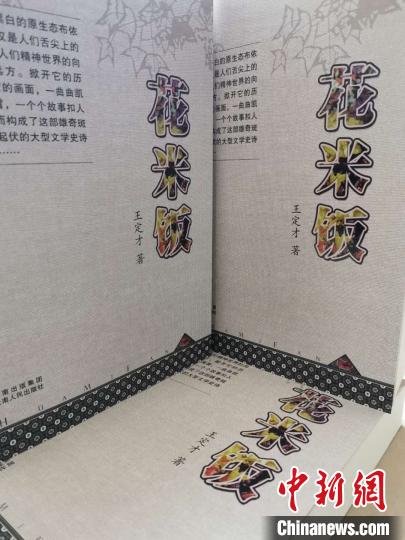 黑白的原生态布依
是人们舌尖上的
人们精神世界的向
方。掀开它的历
的画面，一曲曲凯
，一个个故事扣人
而构成了这部雄奇斑
起伏的大型文学史诗
……
花米饭
王定才 著
南出版集团
南人民出版社
的原生态布依
是人们舌尖上的
们精神世界的向
方。掀开它的历
的画面，一曲曲凯
，一个个故事扣人
构成了这部雄奇斑
伏的大型文学史诗
花米饭
王定才 著
花米饭
王定才 著
中新网
Chinanews.com